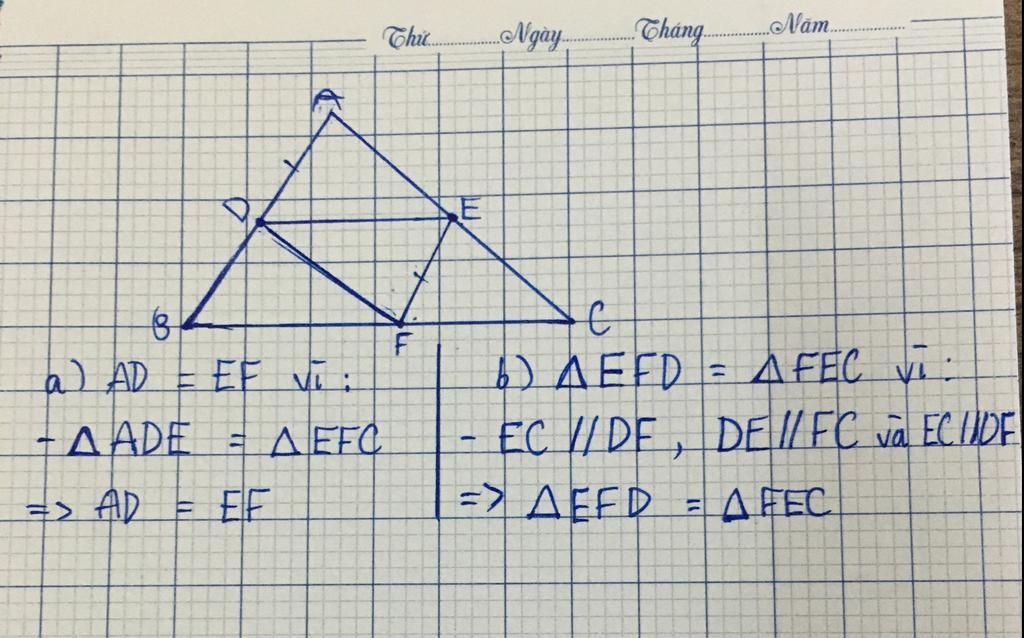 Thứ............Ngày............Tháng............Năm............
A
D
E
B
F
C
a) AD = EF vì :
- ΔADE = ΔEFC
=> AD = EF
b) ΔEFD = ΔFEC vì :
- EC // DF, DE // FC và EC // DF
=> ΔEFD = ΔFEC